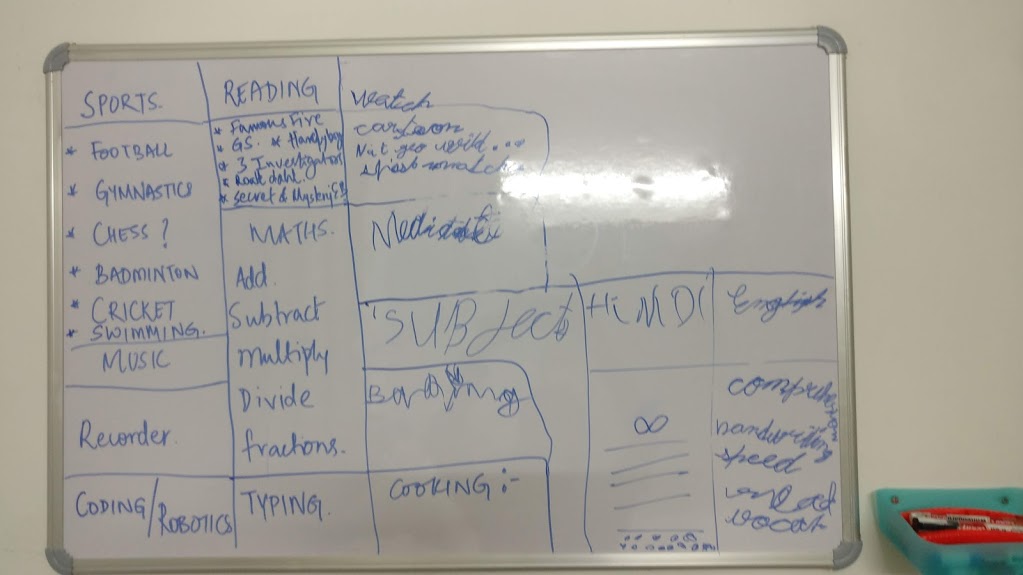 SPORTS.
* FOOTBALL
* GYMNASTICS
* CHESS ?
* BADMINTON
* CRICKET
* SWIMMING.
MUSIC
Recorder.
CODING/ROBOTICS
READING
* Famous Five
* GS. *
* 3 Investigators
* Roald dahl.
* Secret & Mystery
MATHS.
Add.
Subtract
Multiply
Divide
fractions.
TYPING.
Watch
cartoon
Nat geo wild...
SUBJects
COOKING :-
HiNDi
∞
English
comprehension
handwriting
speed